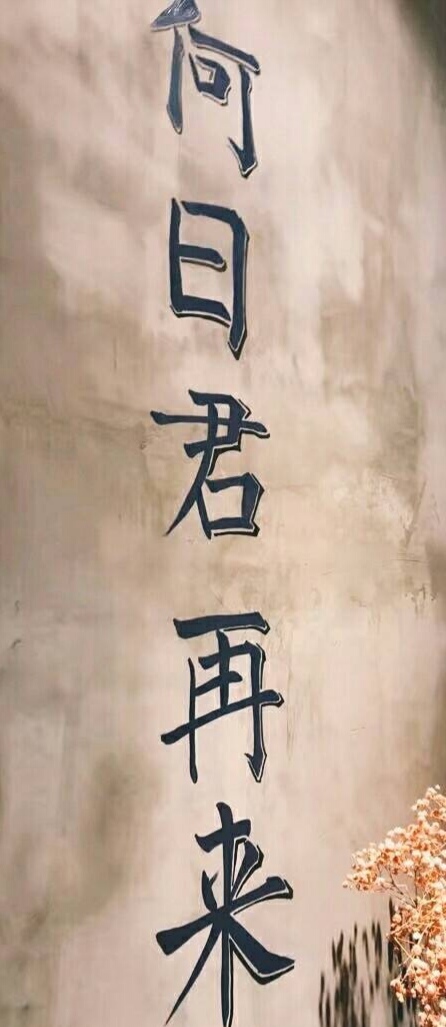 何日君再来